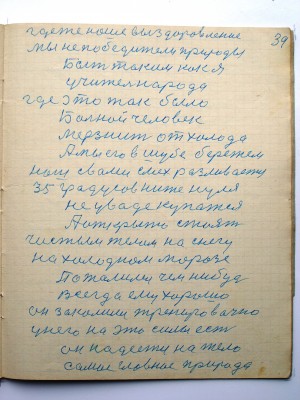 39
где же наше выздоровление
мы не победители природы
Быт таким как я
учител народа
где это так было
Болной человек
мерзнит от холода
А мы его в шубе бережем
наш с вами слух развивается
35 градусов ниже нуля
не уваде купатся
А открыто стоят
чистым телом на снегу
на холодном морозе
Потом или чем нибуд
Всегда ему хорошо
он закоммии тренировачно
у него на это силы ест
он надеется на тело
самое главное природа